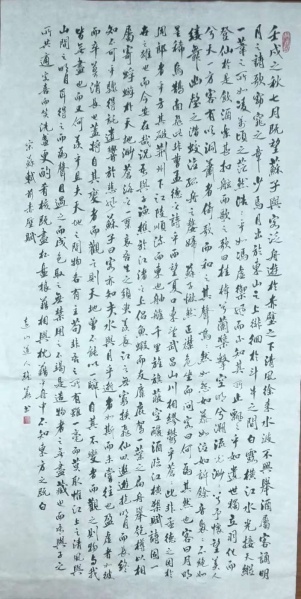 壬戌之秋七月既望蘇子與客泛舟遊於赤壁之下清風徐來水波不興舉酒屬客誦明
月之詩歌窈窕之章少焉月出於東山之上徘徊於斗牛之間白露橫江水光接天縱
一葦之所如凌萬頃之茫然浩浩乎如馮虛御風而不知其所止飄飄乎如遺世獨立羽化而
登仙於是飲酒樂甚扣舷而歌之歌曰桂棹兮蘭槳擊空明兮泝流光渺渺兮予懷望美人
兮天一方客有吹洞簫者倚歌而和之其聲嗚嗚然如怨如慕如泣如訴餘音裊裊不絕如
縷舞幽壑之潛蛟泣孤舟之嫠婦蘇子愀然正襟危坐而問客曰何為其然也客曰月明
星稀烏鵲南飛此非曹孟德之詩乎西望夏口東望武昌山川相繆鬱乎蒼蒼此非孟德之困於
周郎者乎方其破荊州下江陵順流而東也舳艫千里旌旗蔽空釃酒臨江橫槊賦詩固一
世之雄也而今安在哉況吾與子漁樵於江渚之上侶魚蝦而友麋鹿駕一葉之扁舟舉匏樽以相
屬寄蜉蝣於天地渺滄海之一粟哀吾生之須臾羨長江之無窮挾飛仙以遨遊抱明月而長終
知不可乎驟得託遺響於悲風蘇子曰客亦知夫水與月乎逝者如斯而未嘗往也盈虛者如彼
而卒莫消長也蓋將自其變者而觀之則天地曾不能以一瞬自其不變者而觀之則物與我
皆無盡也而又何羨乎且夫天地之間物各有主苟非吾之所有雖一毫而莫取惟江上之清風與
山間之明月耳得之而為聲目遇之而成色取之無禁用之不竭是造物者之無盡藏也而吾與子之
所共適客喜而笑洗盞更酌肴核既盡杯盤狼藉相與枕藉乎舟中不知東方之既白
宋蘇軾前赤壁賦
書